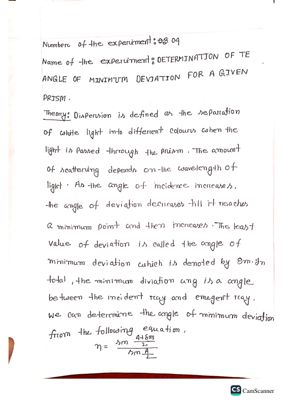 Number of the experiment: 09
Name of the experiment: DETERMINATION OF TE
ANGLE OF MINIMUM DEVIATION FOR A GIVEN
PRISM.
Theory: Dispersion is defined as the separation
of white light into different colours when the
light is passed through the prism. The amount
of scattering depends on the wavelength of
light. As the angle of incidence increases,
the angle of deviation decreases till it reaches
a minimum point and then increases. The least
value of deviation is called the angle of
minimum deviation which is denoted by δm. In
total, the minimum diviation ang is a angle
between the incident ray and emergent ray.
we can determine the angle of minimum deviation
from the following equation.
n = sin (A+δm)/2 / sin A/2
CS CamScanner